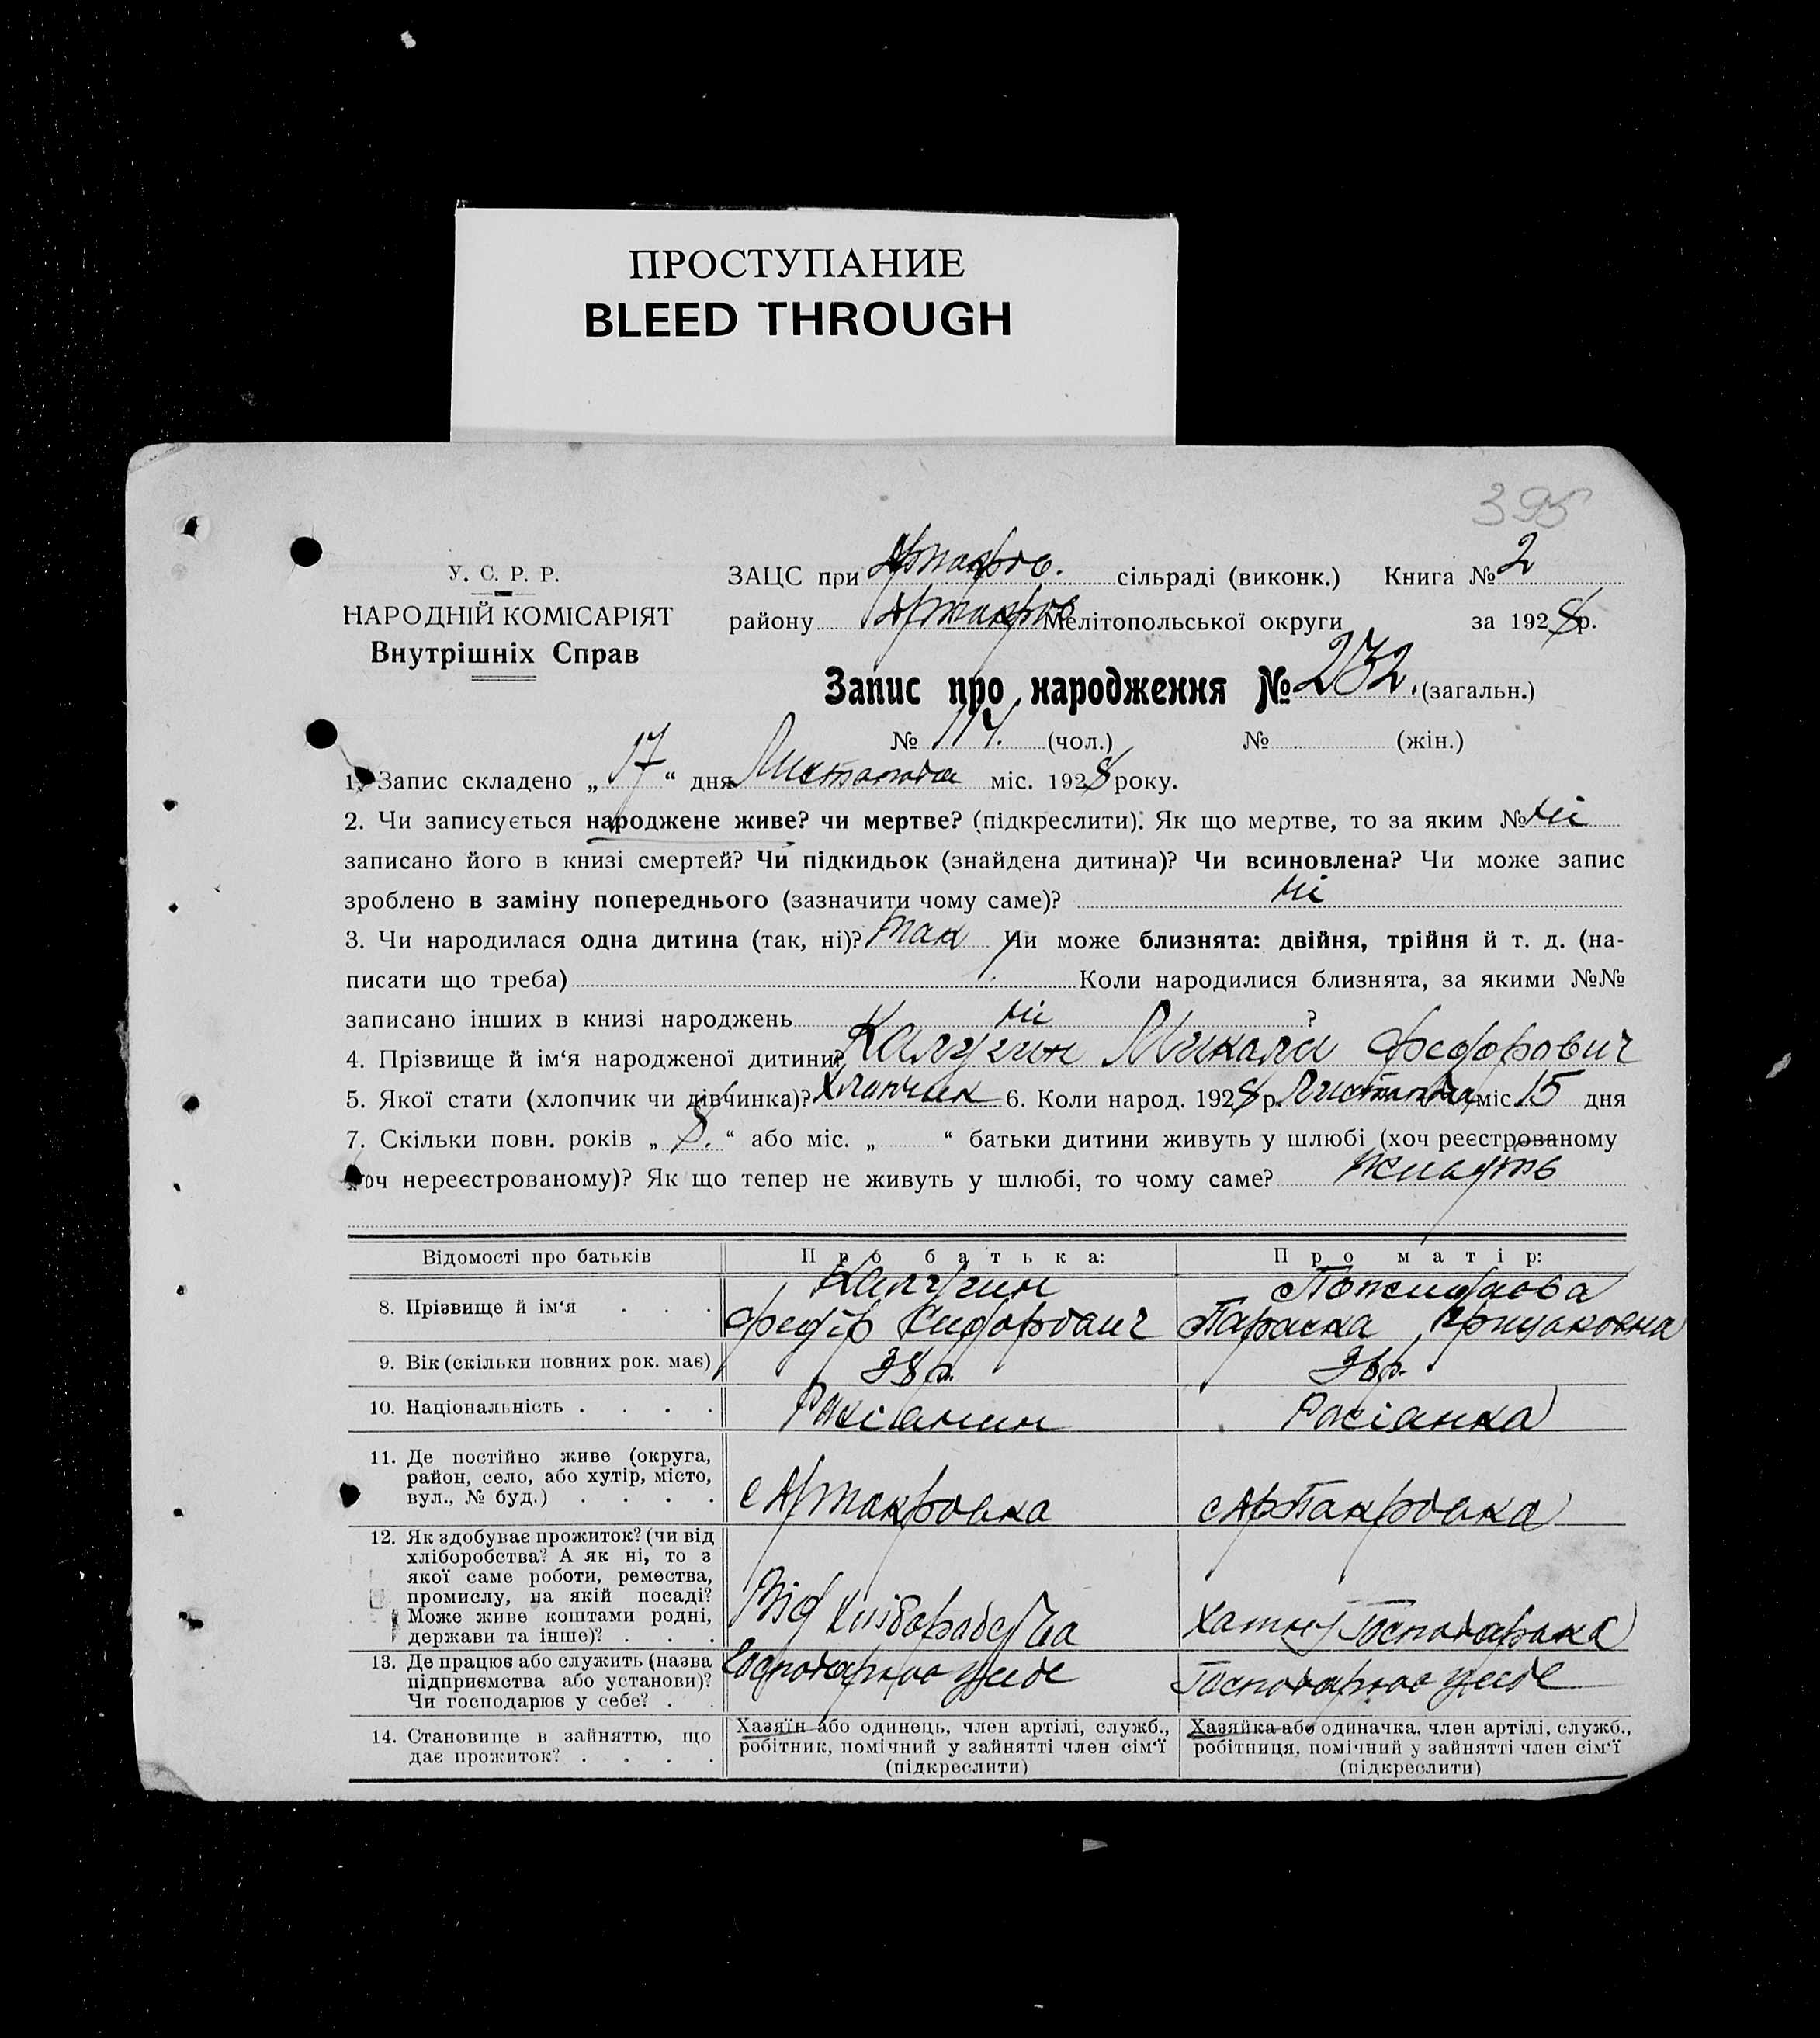 ПРОСТУПАНИЕ
BLEED THROUGH
395
У. С. Р. Р.
НАРОДНІЙ КОМІСАРІЯТ
Внутрішніх Справ
ЗАЦС при сільраді (виконк.) Книга № 2
району Мелітопольської округи за 1928 р.
Запис про народження № 232. (загальн.)
№ 114. (чол.) № (жін.)
1. Запис складено „ 17 “ дня Листопада міс. 1928 року.
2. Чи записується народжене живе? чи мертве? (підкреслити). Як що мертве, то за яким № ні
записано його в книзі смертей? Чи підкидьок (знайдена дитина)? Чи всиновлена? Чи може запис
зроблено в заміну попереднього (зазначити чому саме)? ні
3. Чи народилася одна дитина (так, ні)? так Чи може близнята: двійня, трійня й т. д. (на-
писати що треба) Коли народилися близнята, за якими №№
записано інших в книзі народжень ні ?
4. Прізвище й ім‘я народженої дитини? Калугин Микола Федорович
5. Якої стати (хлопчик чи дівчинка)? Хлопчик 6. Коли народ. 1928 р. Листопада міс 15 дня
7. Скільки повн. років „ 8. “ або міс. „ “ батьки дитини живуть у шлюбі (хоч реєстрованому
хоч нереєстрованому)? Як що тепер не живуть у шлюбі, то чому саме? живуть
Відомості про батьків Про батька: Про матір:
8. Прізвище й ім‘я . . . Калугин
Федір Параска
9. Вік (скільки повних рок. має) 38 р. 36 р.
10. Національність . . . . Росіянин Росіянка
11. Де постійно живе (округа,
район, село, або хутір, місто,
вул., № буд.) . . . .
12. Як здобуває прожиток? (чи від
хліборобства? А як ні, то з
якої саме роботи, ремества,
промислу, на якій посаді?
Може живе коштами родні,
держави та інше)? . . . Від хліборобства Хатня господарка
13. Де працює або служить (назва
підприємства або установи)?
Чи господарює у себе? . . Господарює у себе Господарює у себе
14. Становище в зайняттю, що
дає прожиток? . . . .
Хазяїн або одинець, член артілі, служб.,
робітник, помічний у зайнятті член сім‘ї
(підкреслити)
Хазяйка або одиначка, член артілі, служб.,
робітниця, помічний у зайнятті член сім‘ї
(підкреслити)